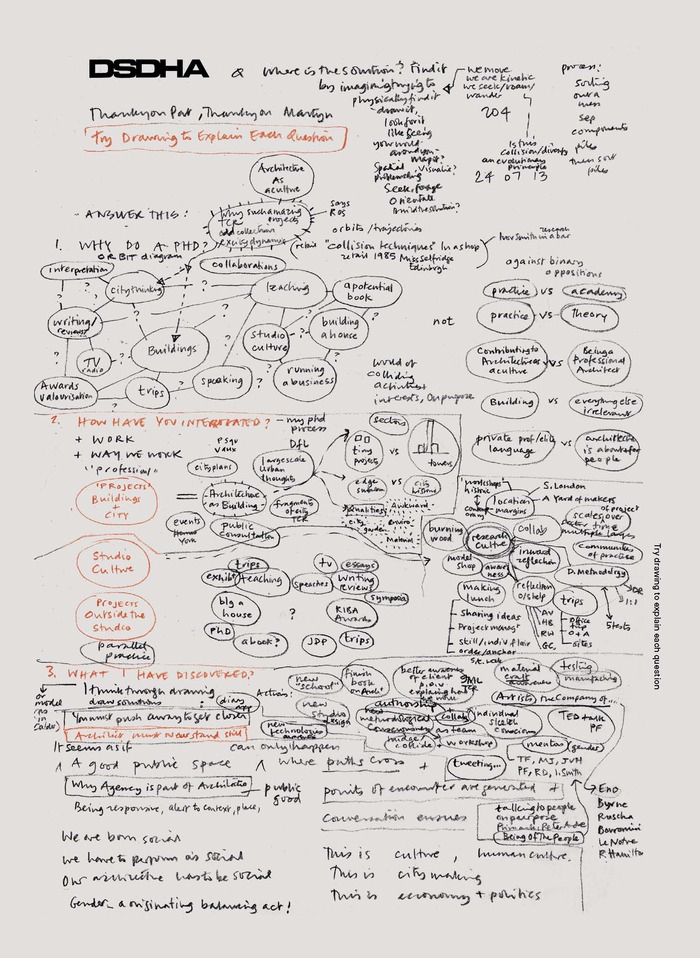 DSDHA
& where is the solution? Find it
by imagining trying to
physically find it
draw it,
look for it
like seeing
your world
around you
maps?
Spatial Visualise?
problem solving
Seek, forage
Orientate
we move
we are kinetic
we seek/roam/
wander
204
Is this
Collision/diversity
an evolutionary
principle
24 07 13
process:
sorting
out a
mess
sep
components
piles
then sort
piles
Thankyou Pat, Thankyou Martyn
Try Drawing to Explain Each Question
Architecture
As
a culture
ANSWER THIS:
Why such amazing
projects
TCR
odd collection
exciting dynamic
says
Ros
orbits / trajectories
1. WHY DO A PHD?
ORBIT diagram
retail "collision techniques" In a shop
retail 1985 Miss Selfridge
Edinburgh
how Smith in a bar
against binary
oppositions
interpretation
city thinking
collaborations
teaching
a potential
book
writing/
reviews
Buildings
studio
culture
building
a house
TV
radio
Awards
valourisation
trips
speaking
running
a business
world of
colliding
activities +
interests, On purpose
not
practice vs academy
practice vs Theory
Contributing to
Architecture as
a culture
vs
Being a
Professional
Architect
Building vs everything else
irrelevant
private prof/elite
language
vs
architecture
is about/for
people
2. HOW HAVE YOU INTEGRATED?
- my phd
process
+ WORK
+ WAY WE WORK
"profession"
PSQU
VAUX
DfL
city plans
large scale
Urban
thoughts
sectors
tiny
projects
vs
towers
edge
suburban
vs
city
historic
"PROJECTS"
Buildings
+
CITY
=
Architecture
as Building
fragments
of city
TCR
events
York
public
consultation
Qualities
city
garden
Awkward
enviro
Material
workshops
historic
location
margins
S. London
A Yard of makers
scales over
time
of project
multiple
burning
wood
research
culture
collab
inward
reflection
Communities
of practice
D. Methodology
model
shop
aware
ness
making
lunch
reflection
o/s help
trips
Sharing ideas
Project manag't
Skill/indiv flair
order/anchor
AV
HB
RW
GC
Office
trip
O+A
sites
JDR
1:1
5 tests
Studio
Culture
trips
exhibit
teaching
speeches
TV
essays
Writing
reviews
symposia
PROJECTS
Outside the
Studio
big a
house
?
RIBA
Awards
PhD
a book?
JDP
trips
parallel
practice
3. WHAT I HAVE DISCOVERED?
or
model
no
in
Calder
I think through drawing
draw solutions
: diary
app
You must push away to get closer
Architect must never stand still
Actions:
new
"school"
finish
book
on Arch'
new
studio
design
new
technologies
better awareness
of client
p.o.v
explaining how
we work
authorship
new
methodological
Consequences
collab
as team
individual
sketch
conscious
SML
TCR
material
craft
awareness
testing
manufacturing
Artist the Company of...
TED talk
PF
nudge/
collide
+ workshop
mentor
gender
tweeting...
TF, MJ, JVH
PF, RD, I. Smith
It seems as if
can only happen
A good public space
where paths cross +
Why Agency is part of Architecture
public
good
points of encounter are generated +
Being responsive, alert to context, place,
Conversation ensues
talking to people
on purpose
Being Of The People
Eno
Byrne
Ruscha
Borromini
Le Notre
R. Hamilton
We are born social
We have to perform as social
Our architecture has to be social
Gender - a originating balancing act!
This is culture, human culture.
This is city making
This is economy + politics
Try drawing to explain each question